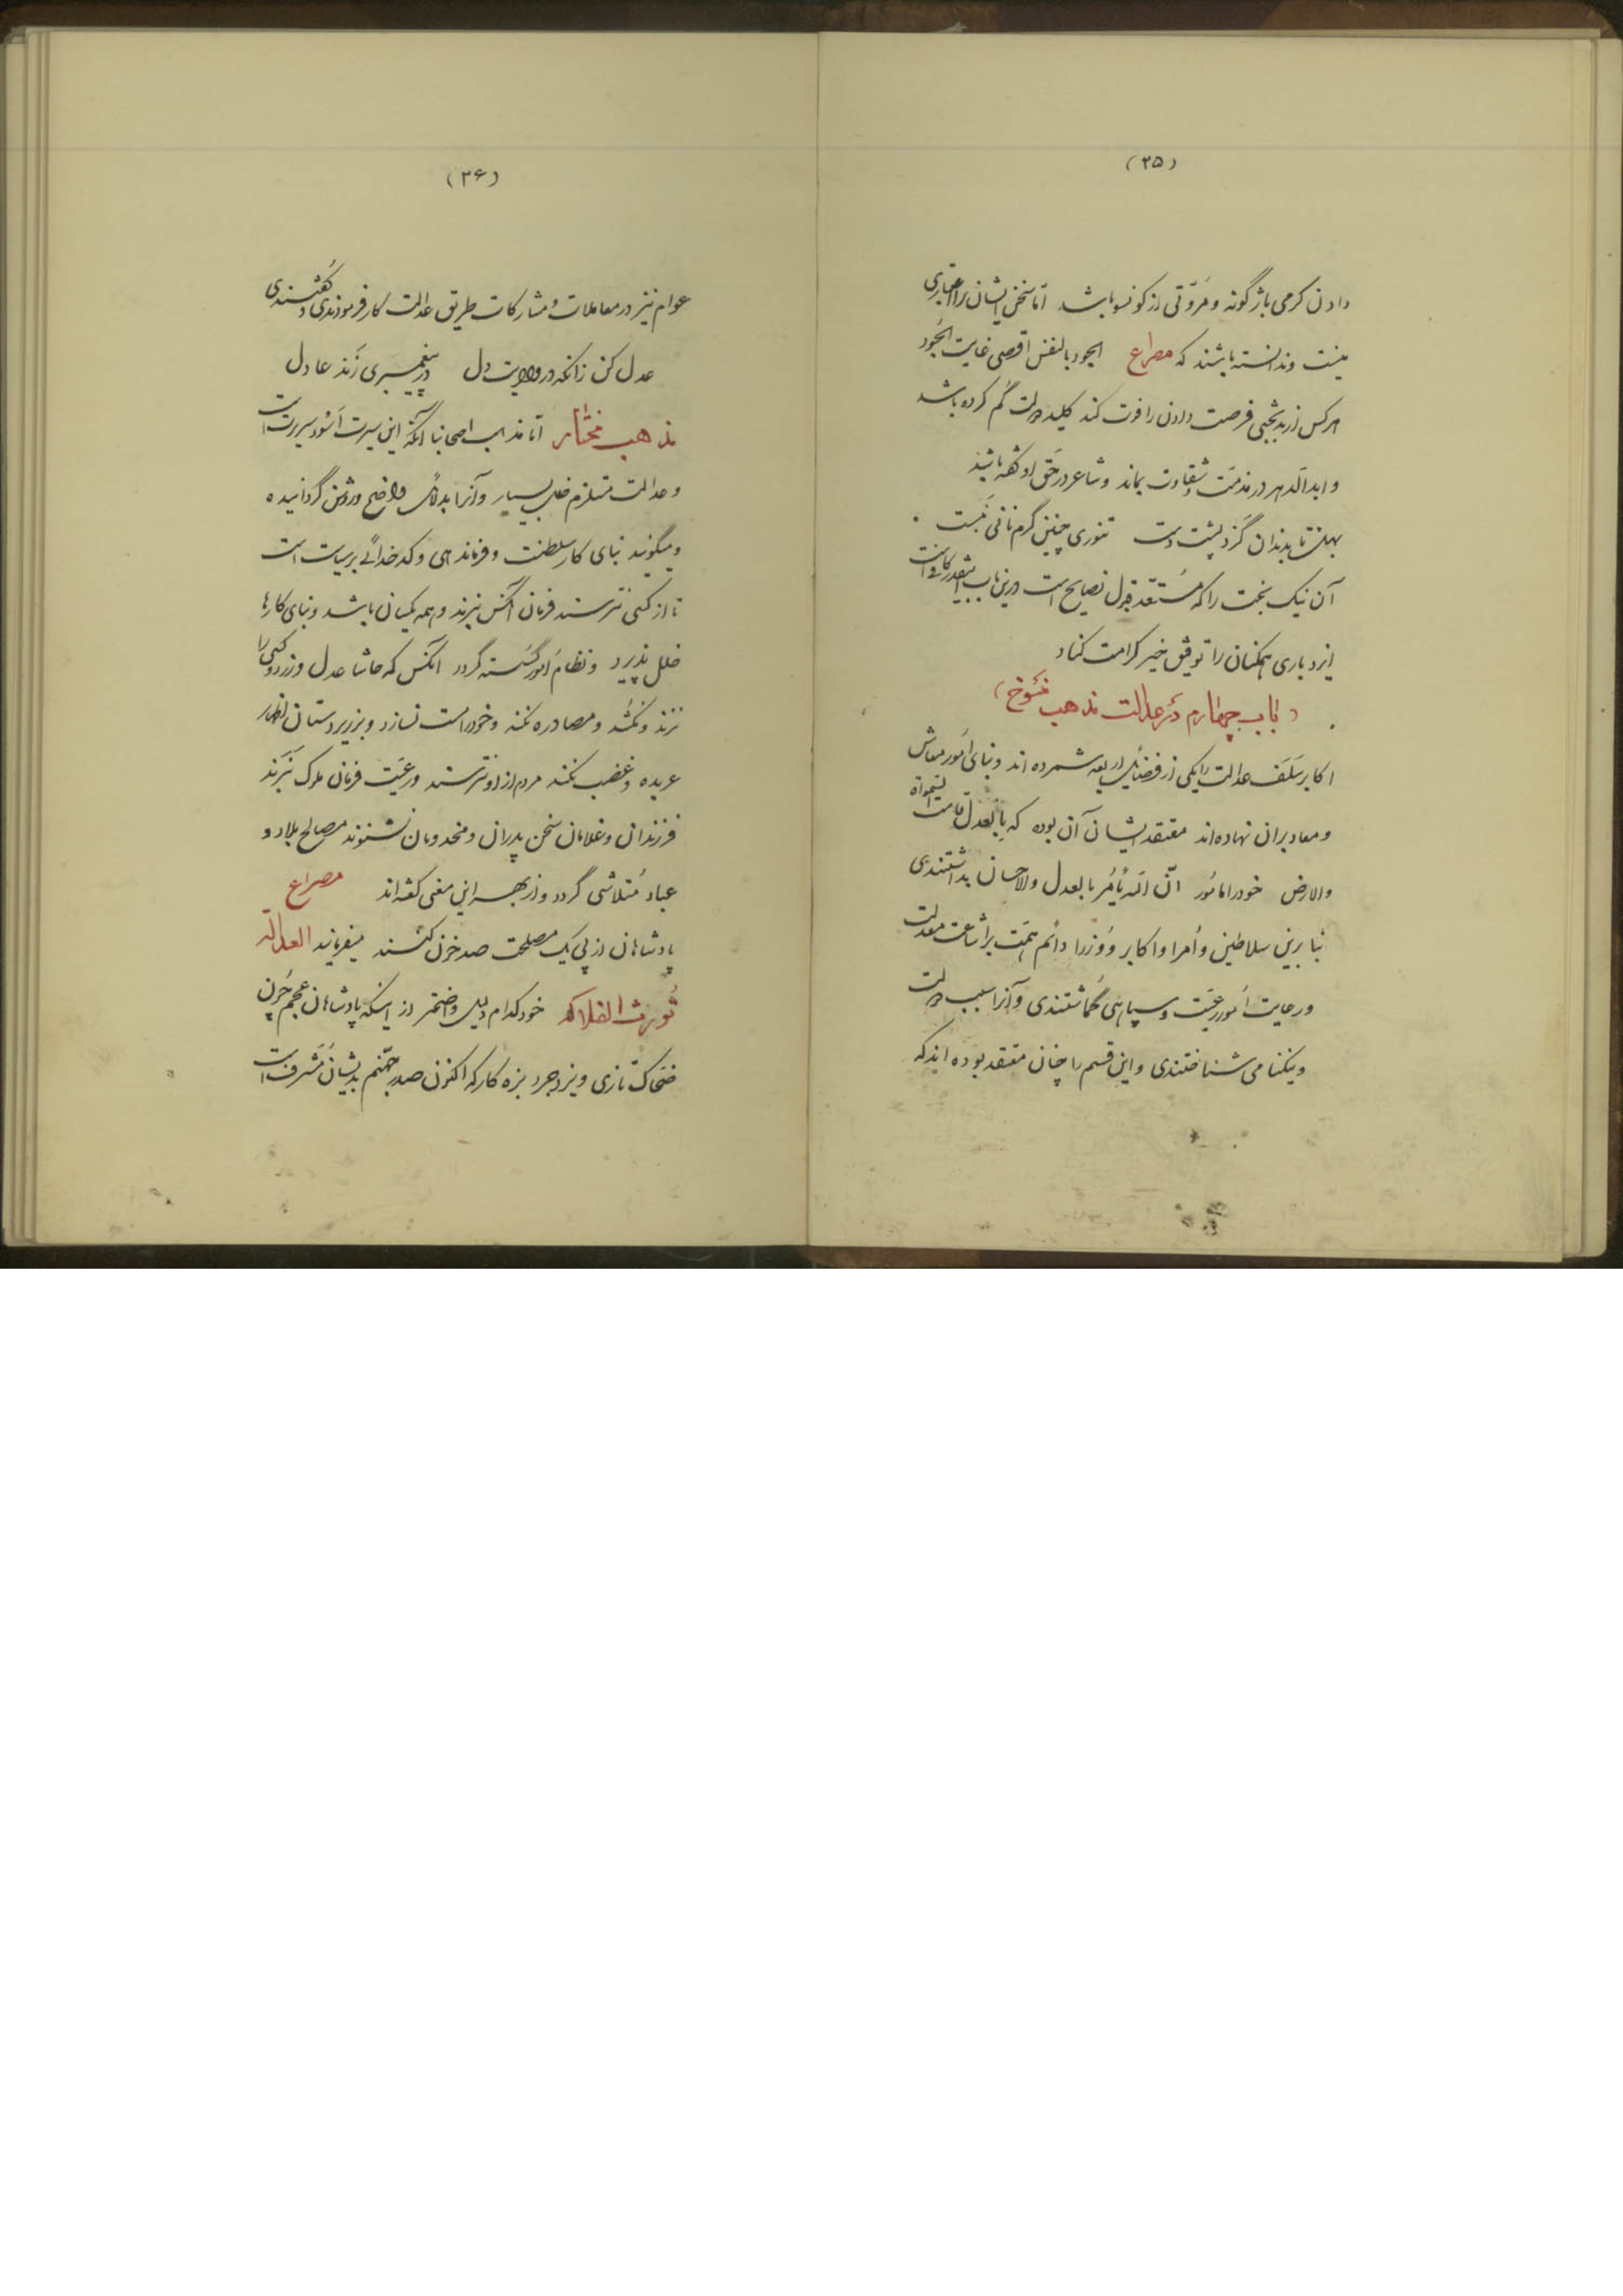 (۲۵)
دادن کرمی باژگونه و مُروّتی از کونسو باشد اما سخن ایشان را اعتباری
نیست وندانسته باشند که مصراع الجود بالنفس اقصی غایت الجُود
هرکس از بدبختی فرصت دادن را فوت کند کلید دولت گم کرده باشد
و ابدالّدهر در مذمّت و شقاوت بماند و شاعر در حَق او گفته باشد
بهلش تا بدندان گزد پشت دست تنوری چنین گرم نانی نَبست
آن نیک بخت را که مُستعدّ قبول نصایح است درین باب اینقدر کافی است
ایزد باری همگنان را توفیق خیر کرامت کناد
(باب چهارم در عدالت مذهب منسُوخ)
اکابر سَلَف عدالت را یکی از فضائل اربعه شمرده اند و بنای اُمور معاش
و معاد بران نهاده‌اند معتقد ایشان آن بوده که بِالعَدلِ قامت السّموات
والارض خود را مامُور انّ الله یَأمُر بالعدل والاحسان بداشتندی
بنا برین سلاطین و اُمرا و اکابر و وُزرا دائم همّت بر اشاعت معدلت
و رعایت اُمور رعیّت و سپاهی گماشتندی و آنرا سبب دولت
و نیکنامی شناختندی و این قسم را چنان معتقد بوده اند که
(۲۶)
عوام نیز در معاملات و مُشارکات طریق عدالت کار فرمودندی و گفتندی
عدل کن زانکه در ولایت دل در پیغمبری زَند عادل
مذهب مختار اما مذهب اصحابنا آنکه این سیرت اَسْوَد سیر است
و عدالت مستلزم خلل بسیار و آنرا بدلائل واضح و روشن گردانیده
و میگویند بنای کار سلطنت و فرماندهی و کدخدائی بر سیاست است
تا از کسی نترسند فرمان آنکس نبرند و همه یکسان باشند و بنای کارها
خلل پذیرد و نظام اُمور گسسته گردد آنکس که حاشا عدل ورزد و کسی را
نزند و نکُشد و مصادره نکند و خود را مست نسازد و بر زیردستان اظهار
عربده و غضب نکند مردم از او نترسند و رعیّت فرمان ملوک نَبَرند
فرزندان و غلامان سخن پدران و مخدومان نشنوند مصالح بلاد و
عباد مُتلاشی گردد و از بهر این معنی گفته‌اند مصراع
پادشاهان از پی یک مصلحت صد خون کنند میفرمایند العدالة
تُورث الفلاکه خود کدام دلیل واضحتر از اینکه پادشاهان عجم چُون
ضحّاک تازی و یزدجرد بزه کار که اکنون صدر جهنّم بدیشان مُشرّف است